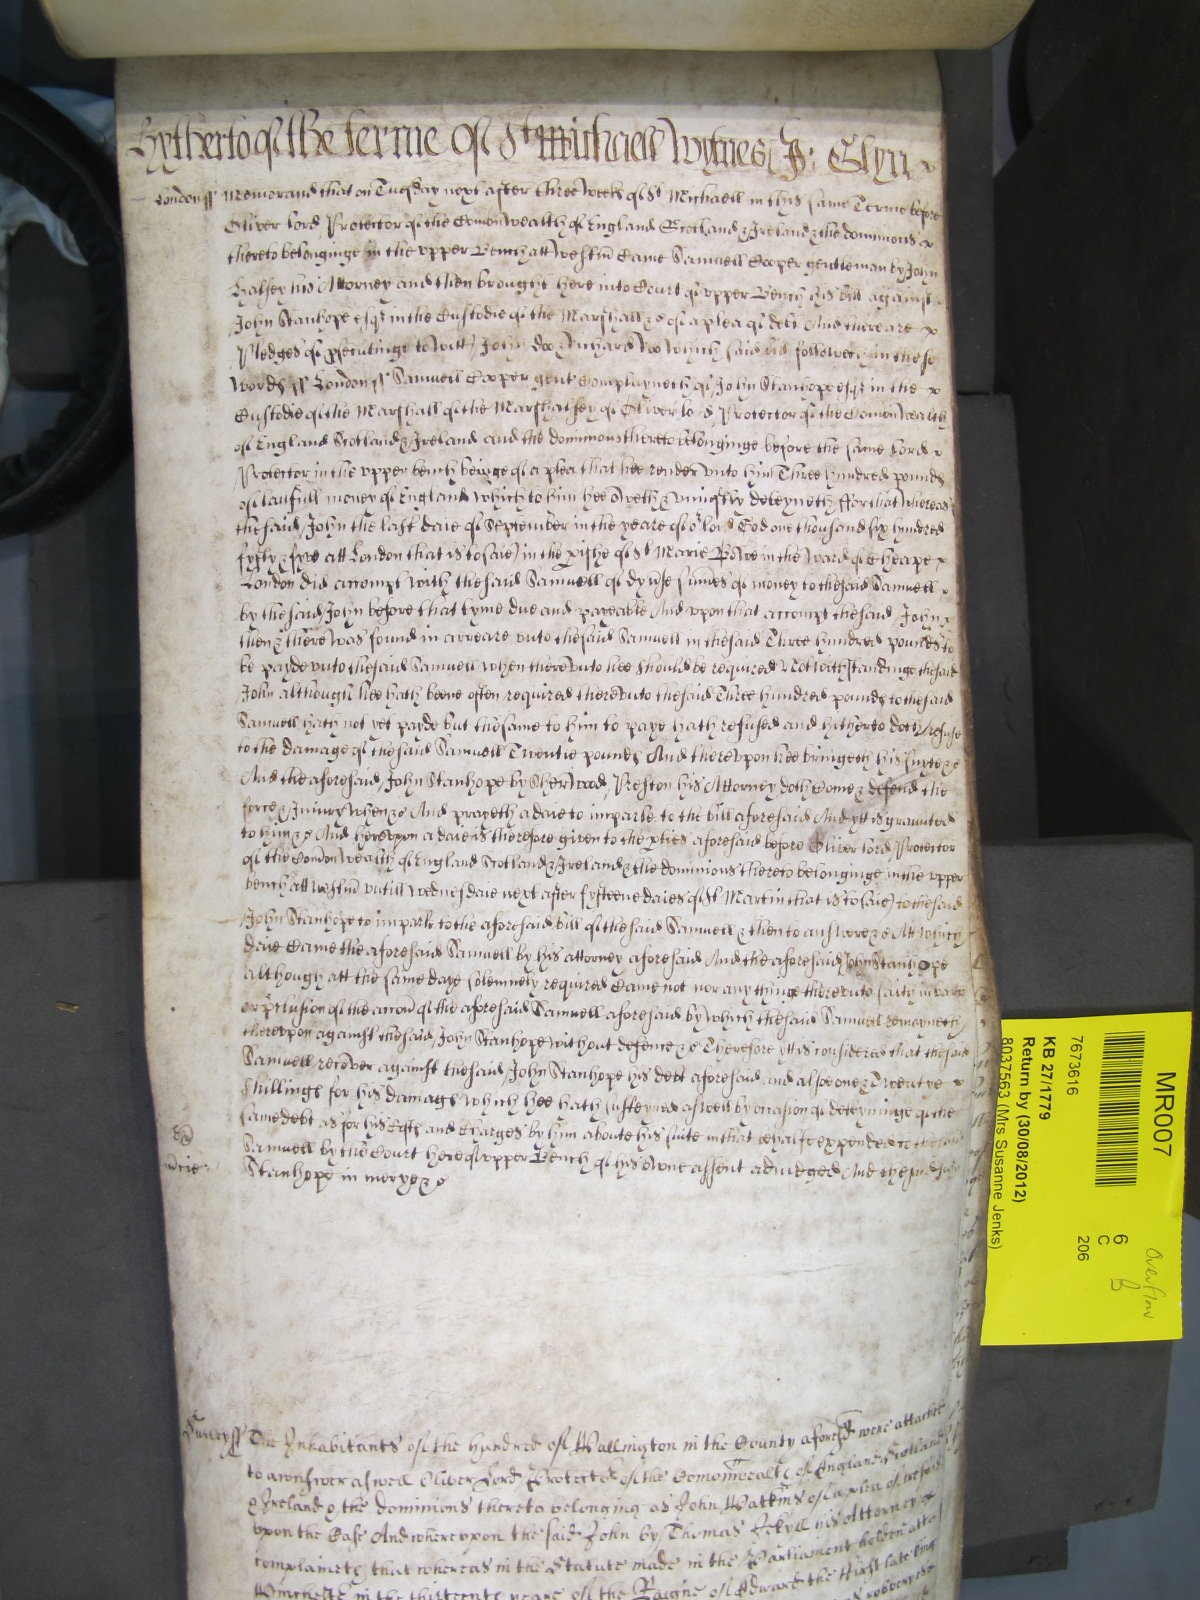 Hytherto of the terme of St Michaell Wytnes J: Glyn
London ss Memorand that on Tuesday next after three weekes of St Michaell in this same Terme before
Oliver lord Protector of the Comonwealth of England Scotland & Ireland & the dominions
thereto belonginge in the vpper Bench att Westm Came Samuell Cooper gentleman by John
Halsey his Attorney and then brought here into Court of vpper Bench his bill against
John Stanhope esqr in the Custodie of the Marshall &c of a plea of debt And there are
Pledges of psecutinge to witt John Doo & Richard Roo which said bill followeth in these
words ss London ss Samuell Cooper gent Complayneth of John Stanhope esqr in the
Custodie of the Marshall of the Marshalsey of Oliver lord Protector of the Comonwealth
of England Scotland & Ireland and the dominions thereto belonginge before the same Lord
Protector in the vpper bench beinge of a plea that hee render vnto him Three hundred pounds
of lawfull money of England which to him hee oweth & uniustly deteyneth ffor that whereas
the said John the last daie of September in the yeare of or lord God one thousand six hundred
fyfty & fyve att London that is to saie in the pishe of St Marie Bowe in the Ward of Cheape
London did accompt with the said Samuell of dyvse sumes of money to the said Samuell
by the said John before that tyme due and payeable And vpon that accompt the said John
then & there was found in arreare vnto the said Samuell in the said Three hundred pounds to
be payde vnto the said Samuell when therevnto hee should be required Notwithstandinge the said
John although hee hath beene often required therevnto the said Three hundred pounds to the said
Samuell hath not yet payde but the same to him to paye hath refused and hitherto doth refuse
to the damage of the said Samuell Twentie pounds And therevpon hee bringeth his suyte &c
And the aforesaid John Stanhope by Sherwood Preston his Attorney doth Come & defend the
force & Iniury when &c And prayeth a daie to imparle to the bill aforesaid And ytt is graunted
to him &c And herevpon a daie is therefore given to the pties aforesaid before Oliver lord Protector
of the Comonwealth of England Scotland & Ireland & the dominions thereto belonginge in the vpper
bench att Westm vntill Wednesdaie next after fyfteene daies of St Martin that is to saie to the said
John Stanhope to imparle to the aforesaid bill of the said Samuell & then to answere &c Att which
daie Came the aforesaid Samuell by his attorney aforesaid And the aforesaid John Stanhope
although att the same daye solemnely required Came not nor any thinge therevnto saith in barr
or pclusion of the accon of the aforesaid Samuell aforesaid by which the said Samuell remayneth
therevpon against the said John Stanhope without defence &c Therefore ytt is considered that the said
Samuell recover against the said John Stanhope his debt aforesaid and alsoe one & Twentye
shillings for his damags which hee hath susteyned aswell by occasion of deteyninge of the
same debt as for his Costs and Charges by him aboute his suite in that behalfe expended to the said
Samuell by the Court here of vpper Bench of his owne assent adiudged And the said John
Stanhope in mercye &c
Surrey ss The Inhabitants of the hundred of Wallington in the County aforesd were attached
to answer aswell Oliver Lord Protector of the Comonwealth of England Scotland
& Ireland & the dominions thereto belonging as John Watkins of a plea of trespas
vpon the Case And wherevpon the said John by Thomas Jekyll his Attorney
complaineth that whereas in the Statute made in the Parliament holden att
Winchester in the thirteenth yeare of the Raigne of Edward the First late king
MR007
7673616
KB 27/1779
Return by (30/08/2012)
8037563 (Mrs Susanne Jenks)
6
C
206
Overflow
B